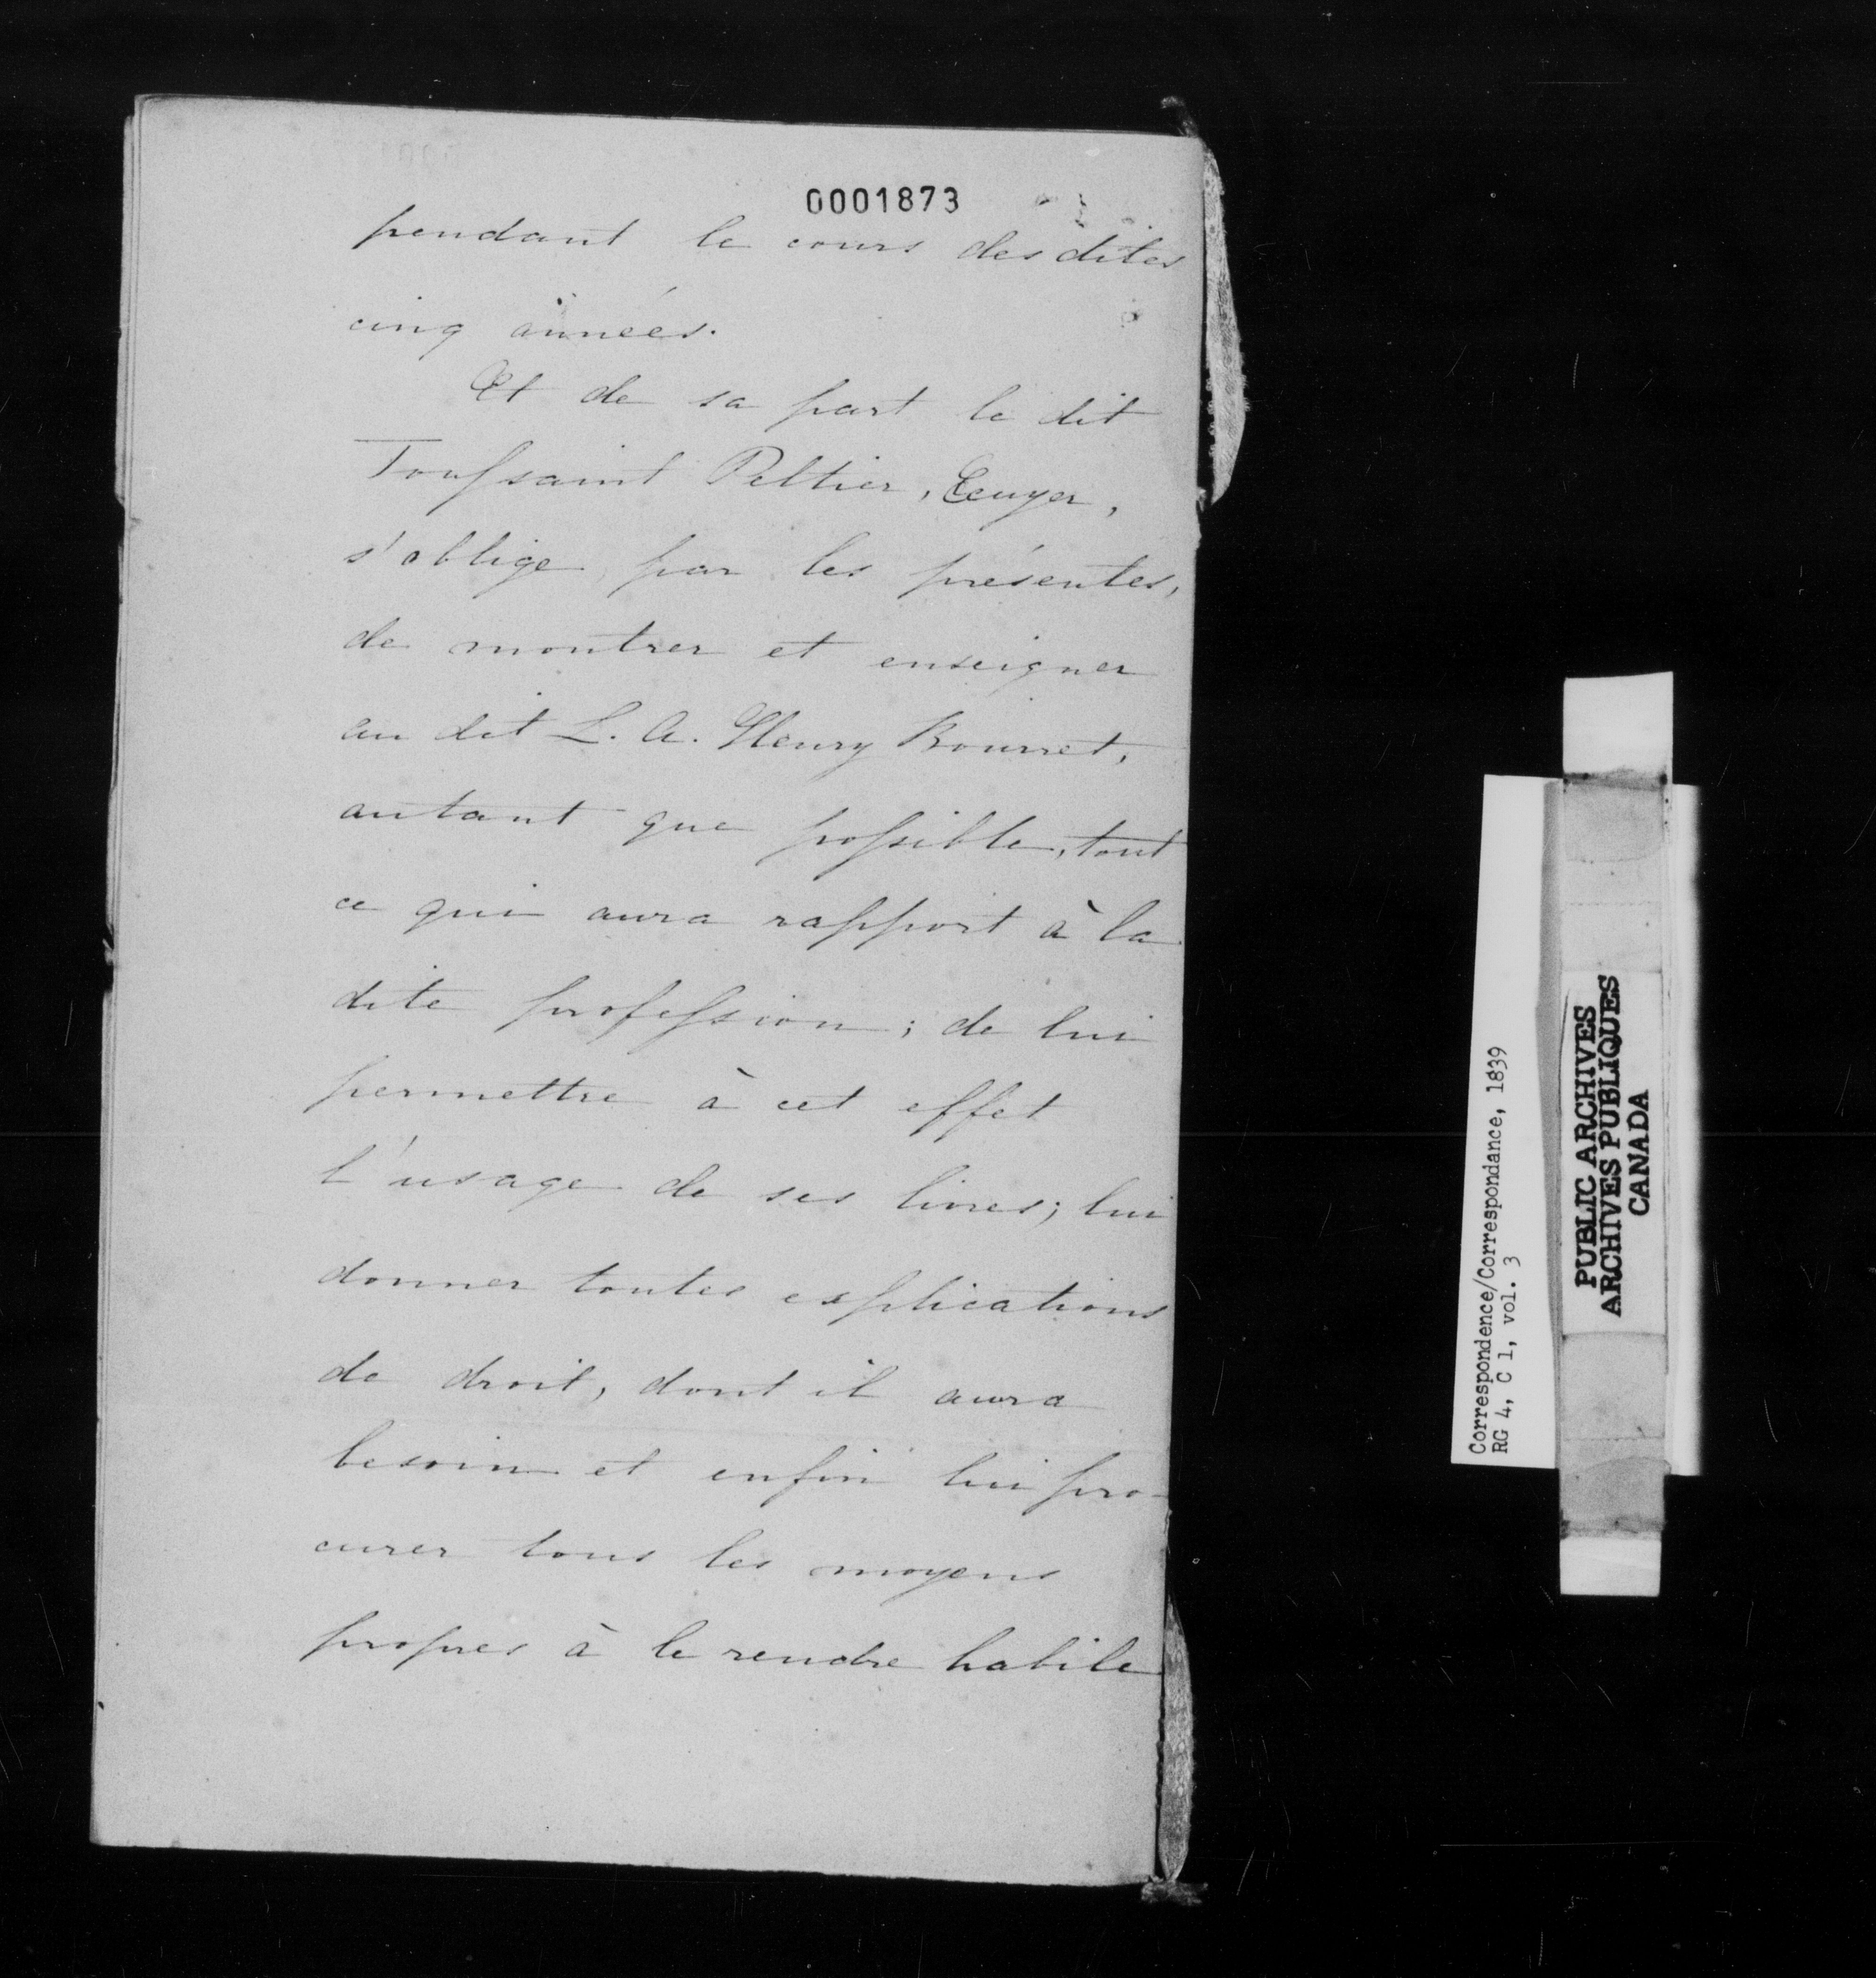 0001873
pendant le cours des dites
cinq années.
Et de sa part le dit
Toussaint Peltier, Ecuyer,
s'oblige, par les présentes,
de montrer et enseigner
au dit L. A. Henry Bourret,
autant que possible, tout
ce qui aura rapport à la
dite profession; de lui
permettre à cet effet
l'usage de ses livres; lui
donner toutes explications
de droit, dont il aura
besoin et enfin lui pro-
curer tous les moyens
propres à le rendre habile
Correspondence/Correspondance, 1839
RG 4, C 1, vol. 3
PUBLIC ARCHIVES
ARCHIVES PUBLIQUES
CANADA